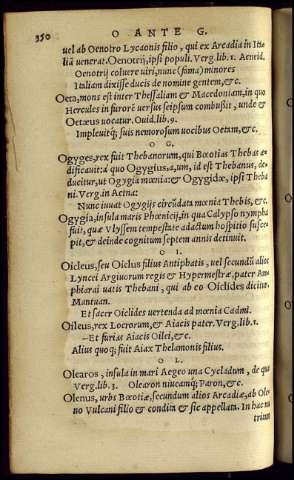 350 O ANTE G.
uel ab Oenotro Lycaonis filio, qui ex Arcadia in Ita
liã uenerat. Oenotrij, ipsi populi. Verg. lib. 1. Aeneid.
Oenotrij coluere uiri, nunc (fama) minores
Italiam dixisse ducis de nomine gentem, &c.
Oeta, mons est inter Thessaliam & Macedoniam, in quo
Hercules in furorē uersus seipsum combussit, unde &
Oetæus uocatur. Ouid. lib. 9.
Impleuitq; suis nemorosum uocibus Oetam, &c.
O G.
Ogyges, rex fuit Thebanorum, qui Bœotias Thebas æ-
dificauit: à quo Ogygius, a, um, id est Thebanus, de-
ducitur, ut Ogygia mœnia: & Ogygidæ, ipsi Theba
ni. Verg. in Aetna:
Nunc iuuat Ogygijs circũdata mœnia Thebis, &c.
Ogygia, insula maris Phœnicij, in qua Calypso nympha
fuit, quæ Vlyssem tempestate adactum hospitio susce-
pit, & deinde cognitum septem annis detinuit.
O I.
Oicleus, seu Oiclus filius Antiphatis, uel secundũ alios
Lyncei Argiuorum regis & Hypermestræ, pater Am
phiarai uatis Thebani, qui ab eo Oiclides dicitur.
Mantuan.
Et sacer Oiclides uertenda ad mœnia Cadmi.
Oileus, rex Locrorum, & Aiacis pater. Verg. lib. 1.
—Et furias Aiacis Oilei, &c.
Alius quoq; fuit Aiax Thelamonis filius.
O L.
Olearos, insula in mari Aegeo una Cycladum, de qua
Verg. lib. 3. Olearon niueamq; Paron, &c.
Olenus, urbs Bœotiæ, secundum alios Arcadiæ, ab Ole
no Vulcani filio & condita & sic appellata. In hac nu
trium